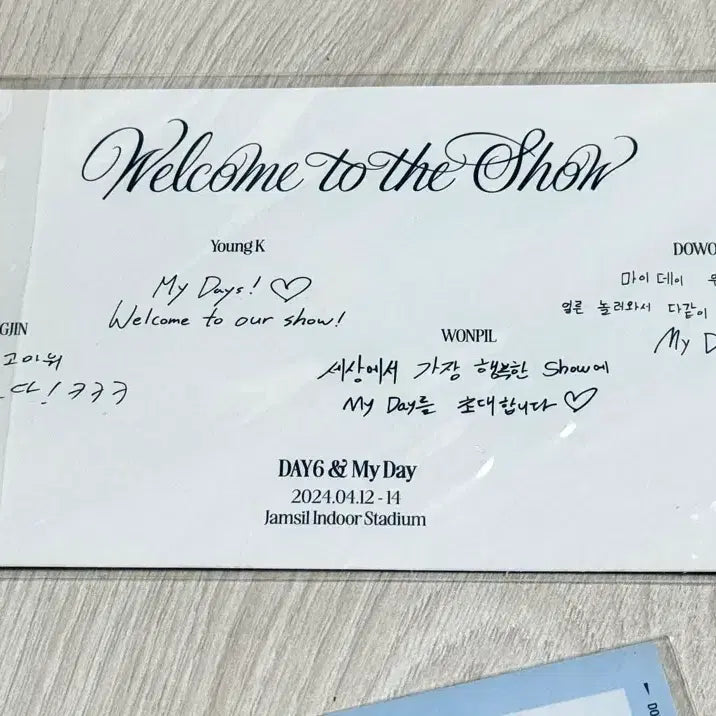 Welcome to the Show
Young K
My Days! ♡
Welcome to our show!
GJIN
고마워
다! ㅋㅋㅋ
WONPIL
세상에서 가장 행복한 Show에
My Day를 초대합니다 ♡
DOWO
마이 데이
얼른 놀러와서 다같이
My D
DAY6 & My Day
2024.04.12 - 14
Jamsil Indoor Stadium
DO